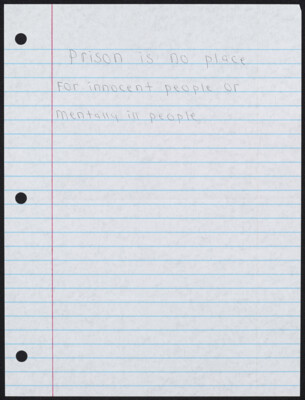 Prison is no place
For innocent people or
mentally ill people